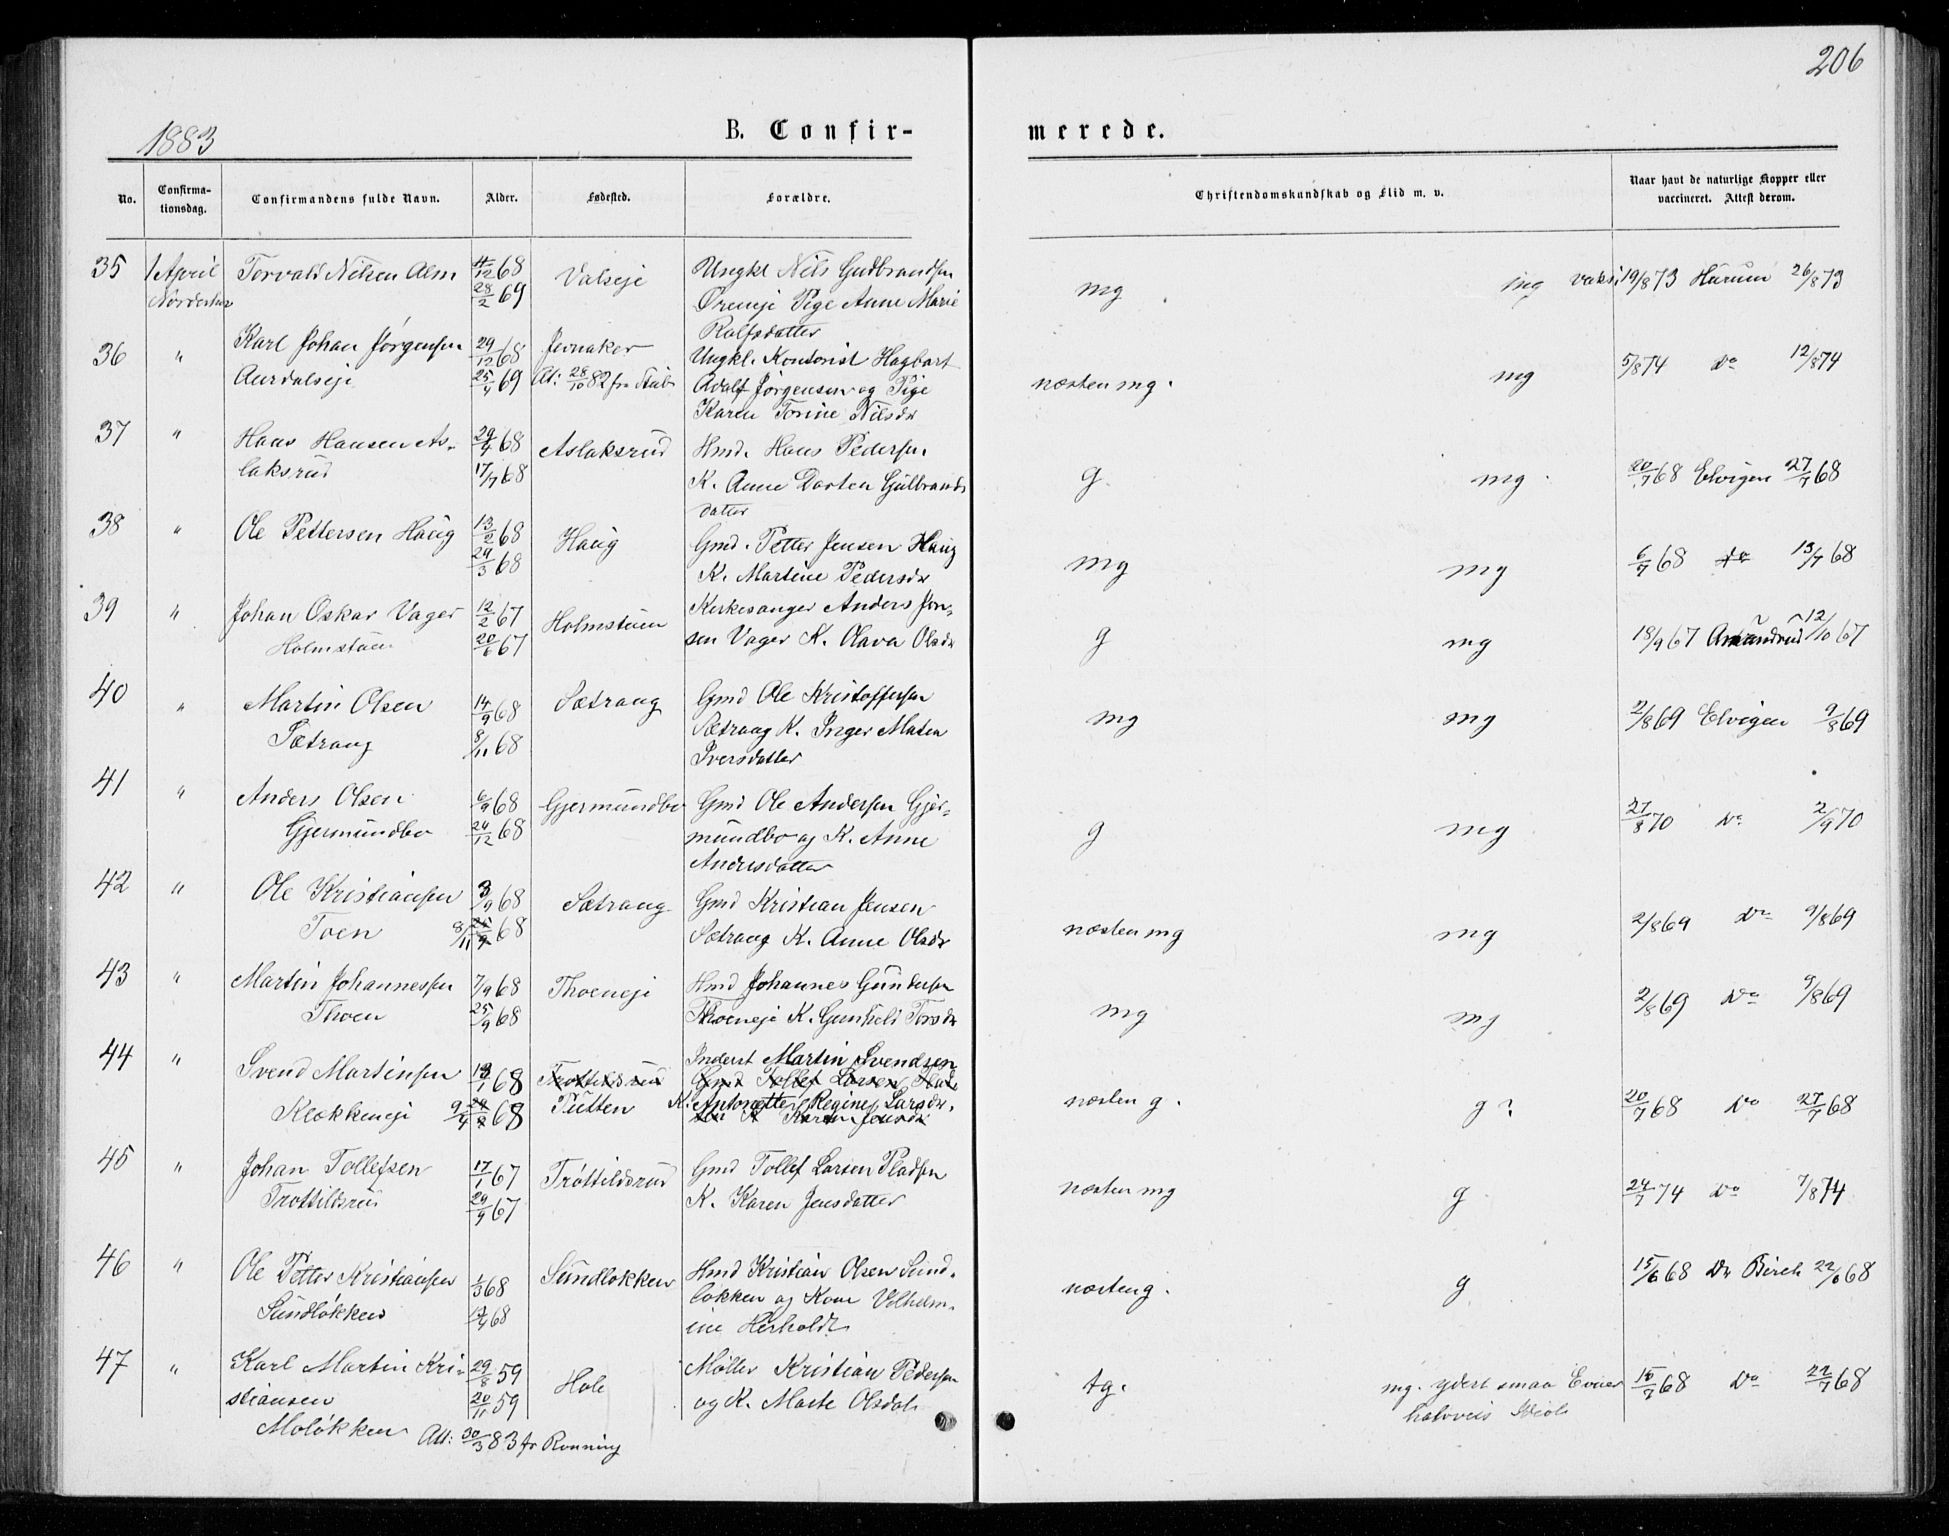 206
1883
B. Confir-
merede.
No.
Confirma-
tionsdag.
Confirmandens fulde Navn.
Alder.
Fødested.
Forældre.
Christendomskundskab og Flid m. v.
Naar havt de naturlige Kopper eller
vaccineret. Attest derom.
35 1 April Torvald Nilsen Alm 11/12 68 Valseje Ungkl Nils Gudbrandsen mg mg vaks. 19/8 73 Hurum 26/8 73
28/2 69 Pige Anne Marie
Rolfsdatter
36 " Karl Johan Jørgensen 29/12 68 Jevnaker Ungkl. Kontorist Hagbart næsten mg. mg 5/8 74 Do 12/8 74
Aurdalseje 25/4 69 At: 28/10 82 fra Adolf Jørgensen og Pige
Karen Torine Nilsdr
37 " Hans Hansen As- 29/4 68 Aslaksrud Hmd. Hans Pedersen g. mg. 20/7 68 Elvigen 27/7 68
laksrud 17/7 68 K. Anne Dorten Gulbrands
datter
38 " Ole Pettersen Haug 13/2 68 Haug Gmd. Petter Jensen Haug mg mg 6/7 68 do 13/7 68
29/3 68 K. Martine Pedersdr
39 " Johan Oskar Vager 12/2 67 Holmstuen Kirkesanger Anders Jon- g mg 18/9 67 12/10 67
Holmstuen 20/6 67 sen Vager K. Olava Olsdr
40 " Martin Olsen 14/9 68 Sætrang Gmd Ole Kristoffersen mg mg 2/8 69 Elvigen 9/8 69
Sætrang 8/11 68 Sætrang K. Inger Maten
Iversdatter
41 " Anders Olsen 6/9 68 Gjermundbo Gmd Ole Andersen Gjer- g mg 27/8 70 Do 2/9 70
Gjermundbo 26/12 68 mundbo og K. Anne
Andersdatter
42 " Ole Kristiansen 3/9 68 Sætrang Gmd Kristian Jensen næsten mg mg 2/8 69 Do 9/8 69
Toen 8/11 68 Sætrang K. Anne Olsdr
43 " Martin Johannessen 7/9 68 Thoeneje Hmd Johannes Gundersen mg mg 2/8 69 Do 9/8 69
Thoen 25/9 68 Thoeneje K. Gunhild Torsdr
44 " Svend Martinsen 13/1 68 Trøttildsrud Inderst Martin Svendsen næsten g. g? 20/7 68 Do 27/7 68
Gmd Tollef Larsen
Klokkeneje 9/4 68 Putten K. Antonette Regine Larsdr.
K Karen Jensdr
45 " Johan Tollefsen 17/1 67 Trøttildsrud Gmd Tollef Larsen Pladsen næsten mg g. 24/7 74 Do 7/8 74
Trøttildsrud 29/9 67 K. Karen Jensdatter
46 " Ole Petter Kristiansen 1/3 68 Sundløkken Hmd Kristian Olsen Sund- næsten g. g 15/6 68 Dr Birch 22/6 68
Sundløkken 17/4 68 løkken og Kone Vilhelm-
ine Herholdt
47 " Karl Martin Kri- 29/8 59 Hole Møller Kristian Pedersen tg. mg. ydert smaa Evner 15/7 68 Do 22/7 68
stiansen 20/11 59 og K. Marte Olsdat. halvveis Idiot
Moløkken Att: 30/3 83 fr Rønning